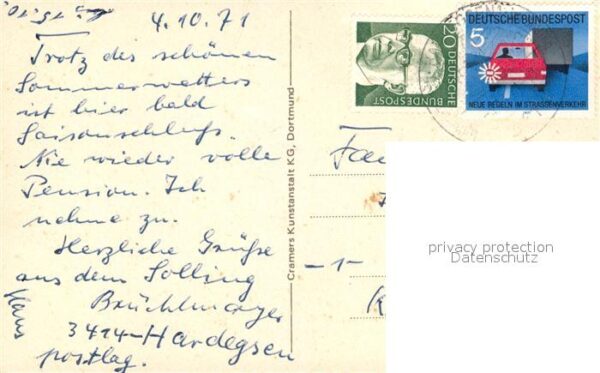 4.10.71
Trotz des schönen
Sommerwetters
ist hier bald
Saisonschluß.
Nie wieder volle
Pension. Ich
nehme zu.
Herzliche Grüße
aus dem Solling
Brüchlmayer
Hans
3414-Hardegsen
postlag.
Cramers Kunstanstalt KG, Dortmund
20
DEUTSCHE
BUNDESPOST
DEUTSCHE BUNDESPOST
5
NEUE REGELN IM STRASSENVERKEHR
-1-
privacy protection
Datenschutz